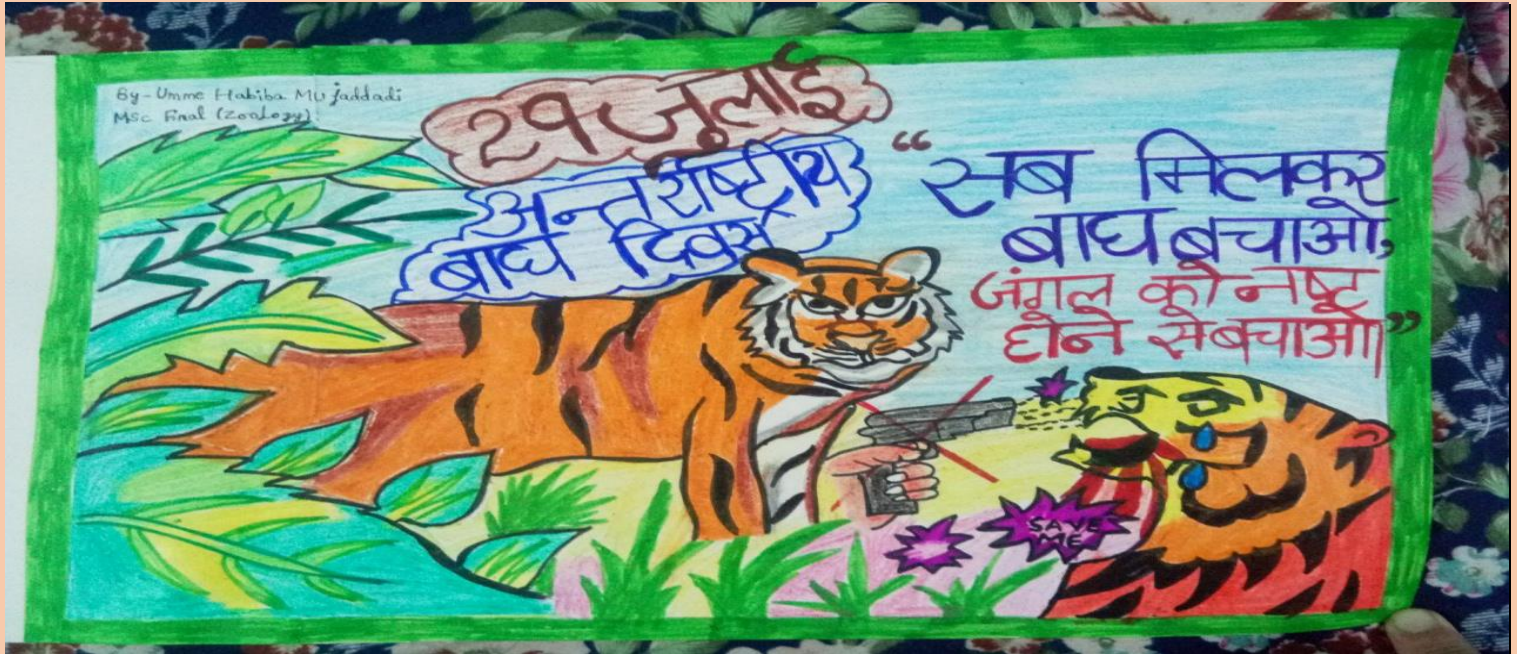 By - Umme Habiba Mujaddadi
MSc Final (Zoology)
२९ जुलाई
अन्तर्राष्ट्रीय
बाघ दिवस
“सब मिलकर
बाघ बचाओ,
जंगल को नष्ट
होने से बचाओ।”
SAVE
ME